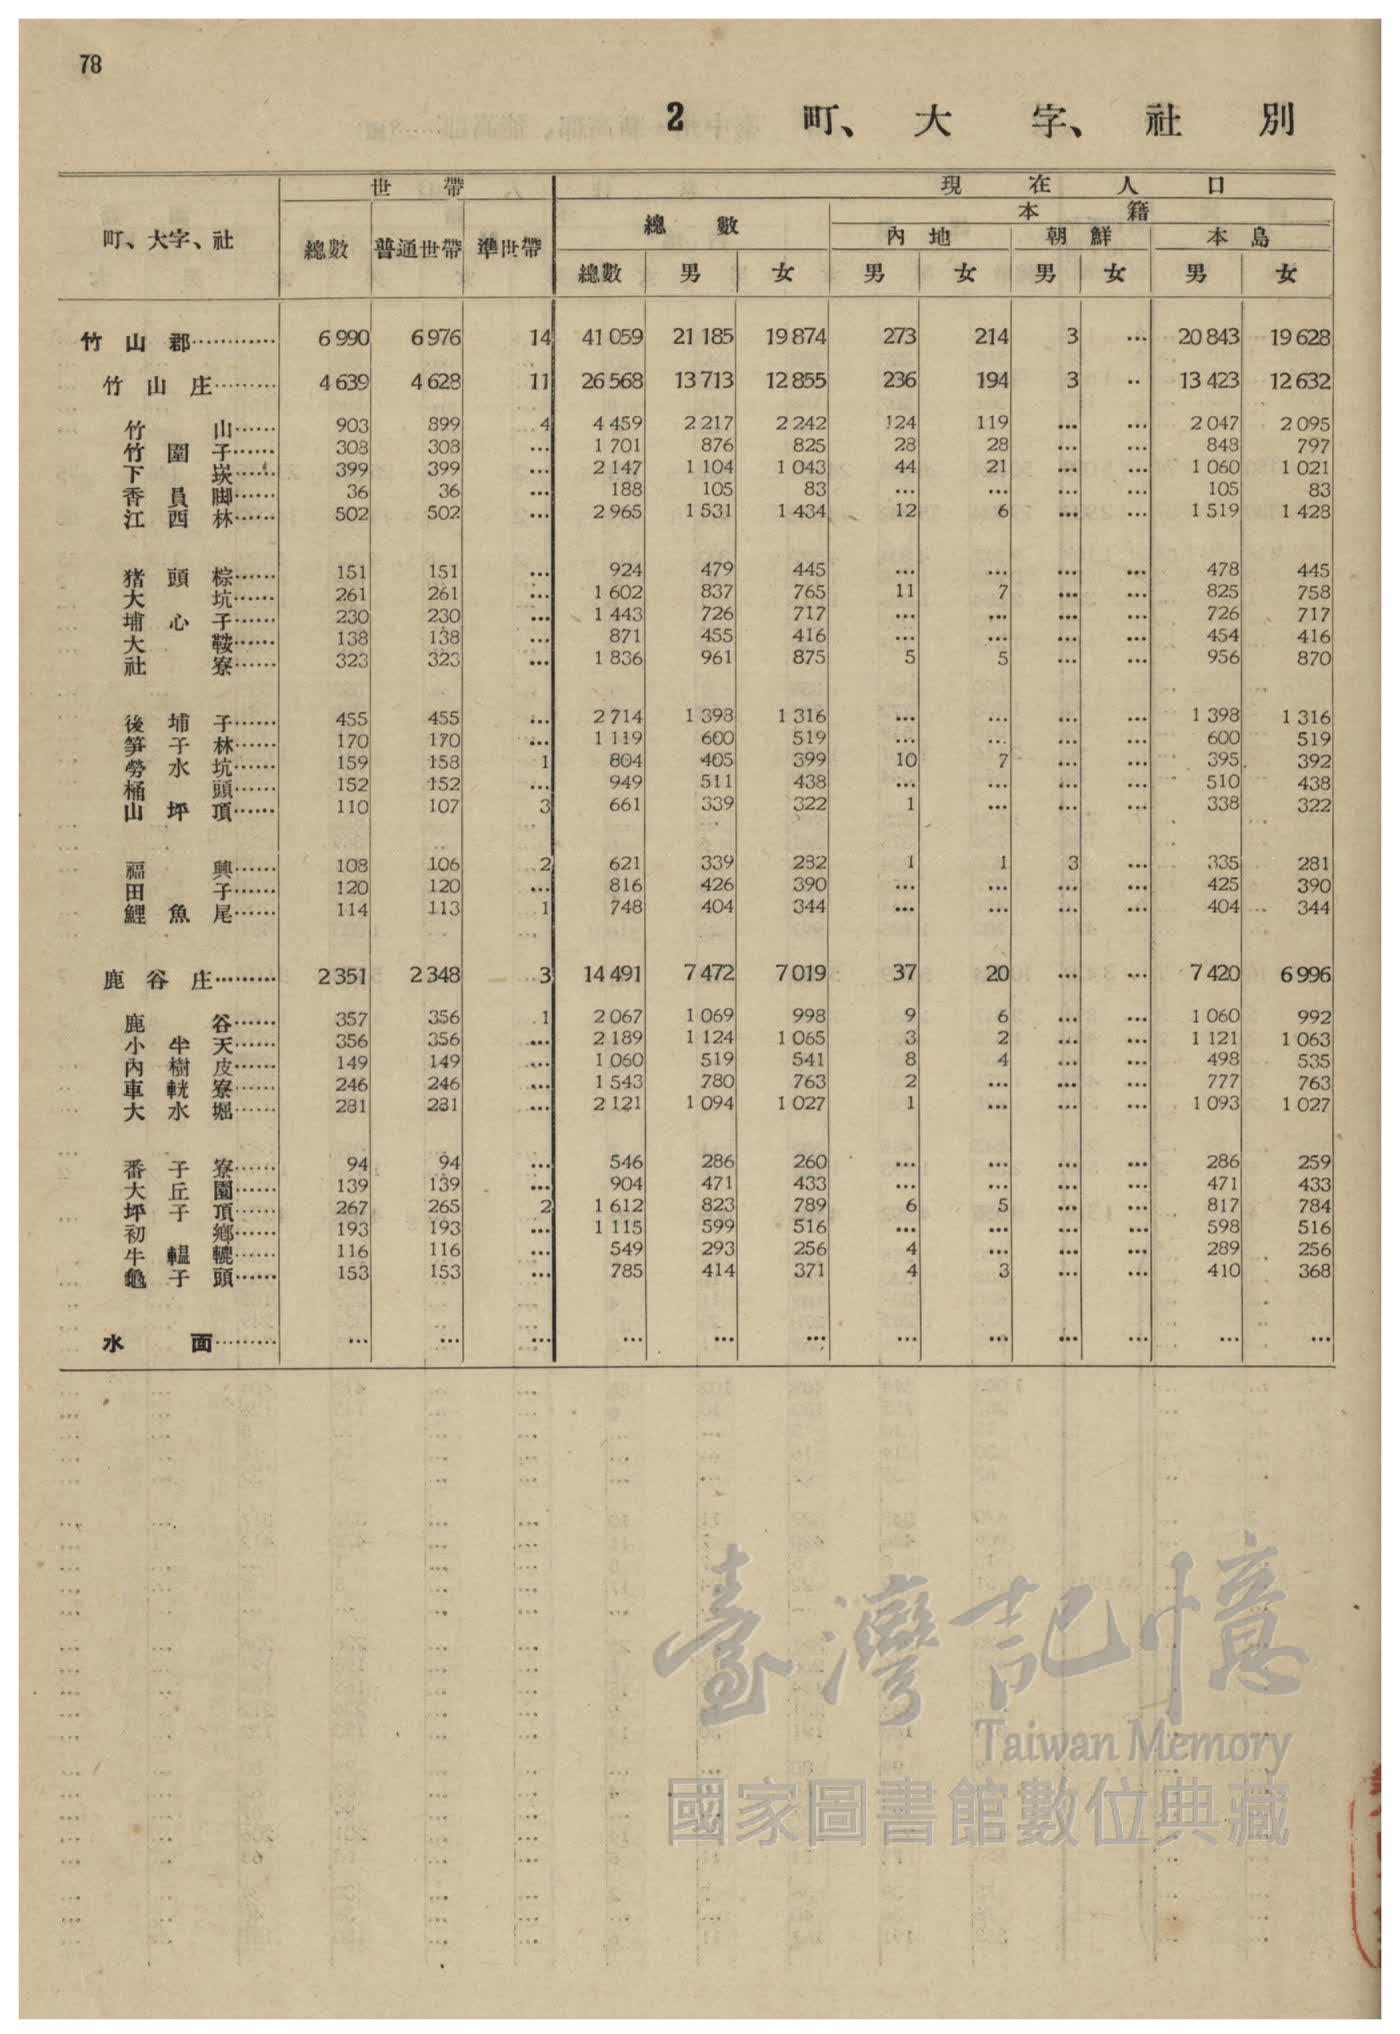 78
2 町、大字、社別
町、大字、社 世帶 現在人口
總數 普通世帶 準世帶 總數 本籍
內地 朝鮮 本島
總數 男 女 男 女 男 女 男 女
竹山郡………… 6 990 6 976 14 41 059 21 185 19 874 273 214 3 … 20 843 19 628
竹山庄……… 4 639 4 628 11 26 568 13 713 12 855 236 194 3 ‥ 13 423 12 632
竹山…… 903 899 4 4 459 2 217 2 242 124 119 … … 2 047 2 095
竹圍子…… 308 308 … 1 701 876 825 28 28 … … 848 797
下崁…… 399 399 … 2 147 1 104 1 043 44 21 … … 1 060 1 021
香員脚…… 36 36 … 188 105 83 … … … … 105 83
江西林…… 502 502 … 2 965 1 531 1 434 12 6 … … 1 519 1 428
猪頭棕…… 151 151 … 924 479 445 … … … … 478 445
大坑…… 261 261 … 1 602 837 765 11 7 … … 825 758
埔心子…… 230 230 … 1 443 726 717 … … … … 726 717
大鞍…… 138 138 … 871 455 416 … … … … 454 416
社寮…… 323 323 … 1 836 961 875 5 5 … … 956 870
後埔子…… 455 455 … 2 714 1 398 1 316 … … … … 1 398 1 316
笋子林…… 170 170 … 1 119 600 519 … … … … 600 519
勞水坑…… 159 158 1 804 405 399 10 7 … … 395 392
桶頭…… 152 152 … 949 511 438 … … … … 510 438
山坪頂…… 110 107 3 661 339 322 1 … … … 338 322
福興…… 108 106 2 621 339 282 1 1 3 … 335 281
田子…… 120 120 … 816 426 390 … … … … 425 390
鯉魚尾…… 114 113 1 748 404 344 … … … … 404 344
鹿谷庄……… 2 351 2 348 3 14 491 7 472 7 019 37 20 … … 7 420 6 996
鹿谷…… 357 356 1 2 067 1 069 998 9 6 … … 1 060 992
小半天…… 356 356 … 2 189 1 124 1 065 3 2 … … 1 121 1 063
內樹皮…… 149 149 … 1 060 519 541 8 4 … … 498 535
車輄寮…… 246 246 … 1 543 780 763 2 … … … 777 763
大水堀…… 281 281 … 2 121 1 094 1 027 1 … … … 1 093 1 027
番子寮…… 94 94 … 546 286 260 … … … … 286 259
大丘園…… 139 139 … 904 471 433 … … … … 471 433
坪子頂…… 267 265 2 1 612 823 789 6 5 … … 817 784
初鄉…… 193 193 … 1 115 599 516 … … … … 598 516
牛轀轆…… 116 116 … 549 293 256 4 … … … 289 256
龜子頭…… 153 153 … 785 414 371 4 3 … … 410 368
水面……… … … … … … … … … … … … …
臺灣記憶
Taiwan Memory
國家圖書館數位典藏